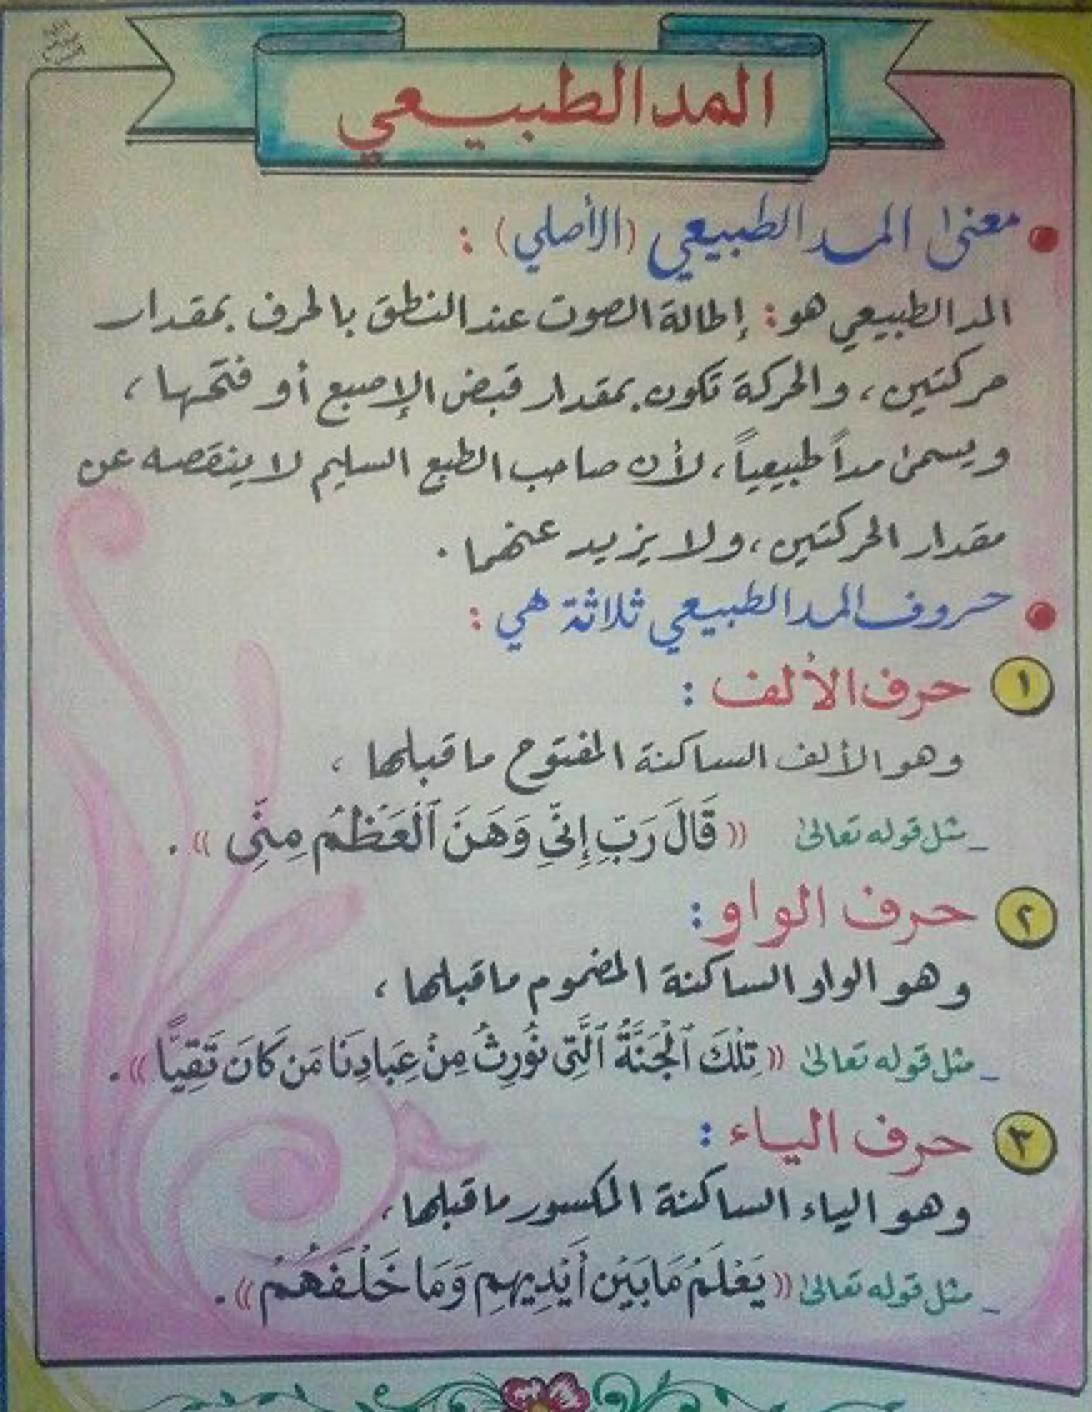 المد الطبيعي
معنى المد الطبيعي (الأصلي) :
المد الطبيعي هو: إطالة الصوت عند النطق بالحرف بمقدار
حركتين، والحركة تكون بمقدار قبض الإصبع أو فتحها،
ويسمى مداً طبيعياً، لأن صاحب الطبع السليم لا ينقصه عن
مقدار الحركتين، ولا يزيد عنهما.
حروف المد الطبيعي ثلاثة هي :
١ حرف الألف :
وهو الألف الساكنة المفتوح ما قبلها ،
_ مثل قوله تعالى « قَالَ رَبِّ إِنِّي وَهَنَ ٱلْعَظْمُ مِنِّي ».
٢ حرف الواو :
وهو الواو الساكنة المضموم ما قبلها ،
_ مثل قوله تعالى « تِلْكَ ٱلْجَنَّةُ ٱلَّتِي نُورِثُ مِنْ عِبَادِنَا مَن كَانَ تَقِيًّا ».
٣ حرف الياء :
وهو الياء الساكنة المكسور ما قبلها ،
_ مثل قوله تعالى « يَعْلَمُ مَا بَيْنَ أَيْدِيهِمْ وَمَا خَلْفَهُمْ ».